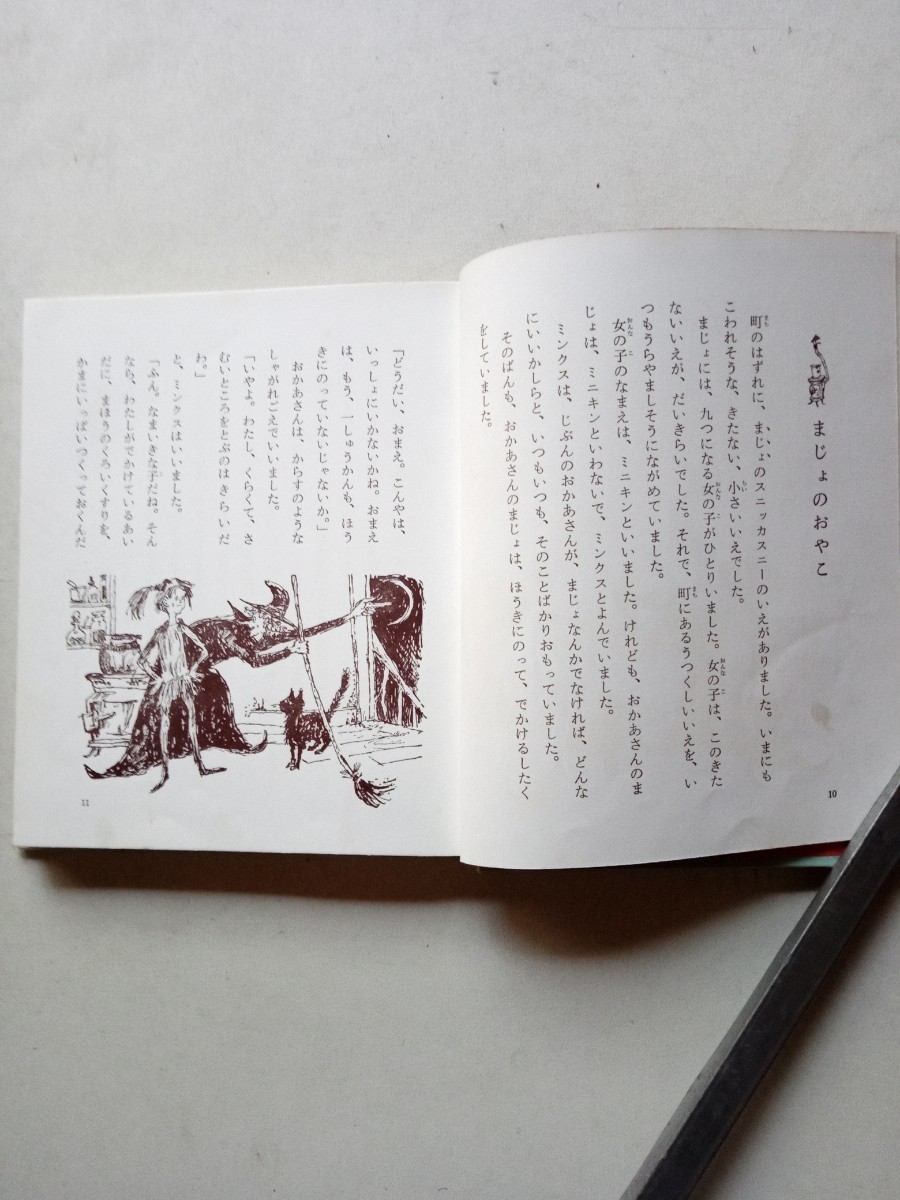 まじょのおやこ
町のはずれに、まじょのスニッカスニーのいえがありました。いまにも
こわれそうな、きたない、小さいいえでした。
まじょには、九つになる女の子がひとりいました。女の子は、このきた
ないいえが、だいきらいでした。それで、町にあるうつくしいいえを、い
つもうらやましそうにながめていました。
女の子のなまえは、ミニキンといいました。けれども、おかあさんのま
じょは、ミニキンといわないで、ミンクスとよんでいました。
ミンクスは、じぶんのおかあさんが、まじょなんかでなければ、どんな
にいいかしらと、いつもいつも、そのことばかりおもっていました。
そのばんも、おかあさんのまじょは、ほうきにのって、でかけるしたく
をしていました。
10
「どうだい、おまえ。こんやは、
いっしょにいかないかね。おまえ
は、もう、一しゅうかんも、ほう
きにのっていないじゃないか。」
おかあさんは、からすのような
しゃがれごえでいいました。
「いやよ。わたし、くらくて、さ
むいところをとぶのはきらいだ
わ。」
と、ミンクスはいいました。
「ふん。なまいきな子だね。そん
なら、わたしがでかけているあい
だに、まほうのくろいくすりを、
かまにいっぱいつくっておくんだ
11